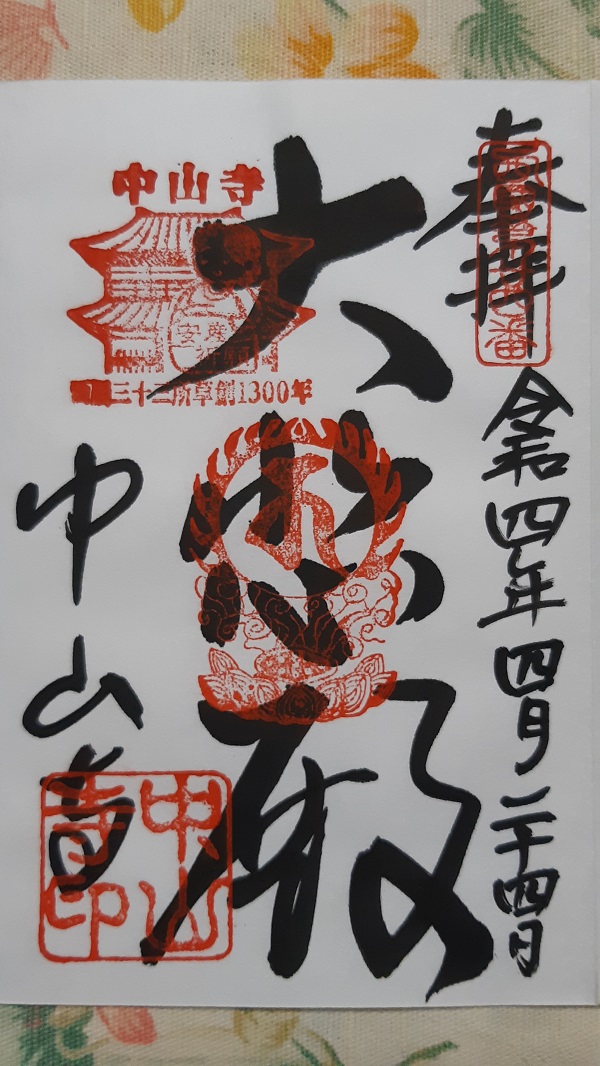 奉拝
令和四年四月二十四日
大悲殿
中山寺
安産
祈願
三十三所草創1300年
中山寺
中山寺印